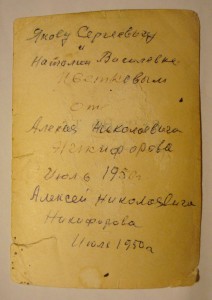 Якову Сергеевичу
и
Наталии Василевне
от
Алексея Николаевича
Никифорова
Июль 1950г
Алексей Николаевича
Никифорова
Июль 1950г